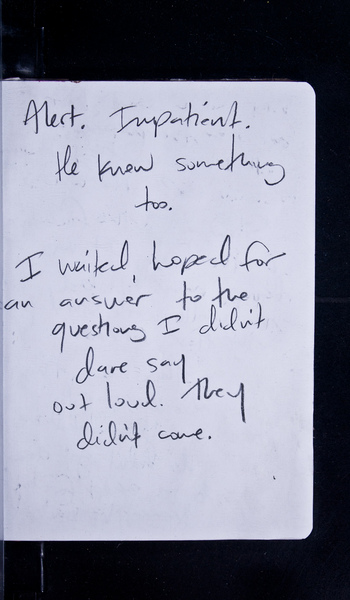 Alert. Impatient.
He knew something
too.
I waited, hoped for
an answer to the
questions I didn't
dare say
out loud. They
didn't come.